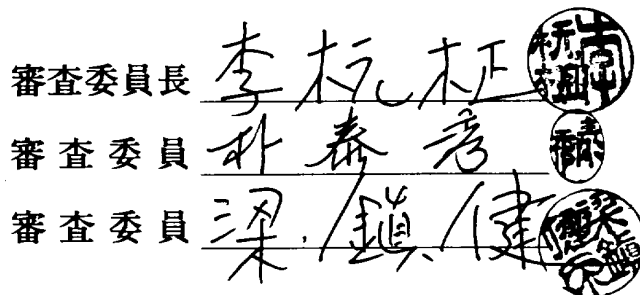 審査委員長 李杬柾
審査委員 朴泰彦
審査委員 梁鎭健